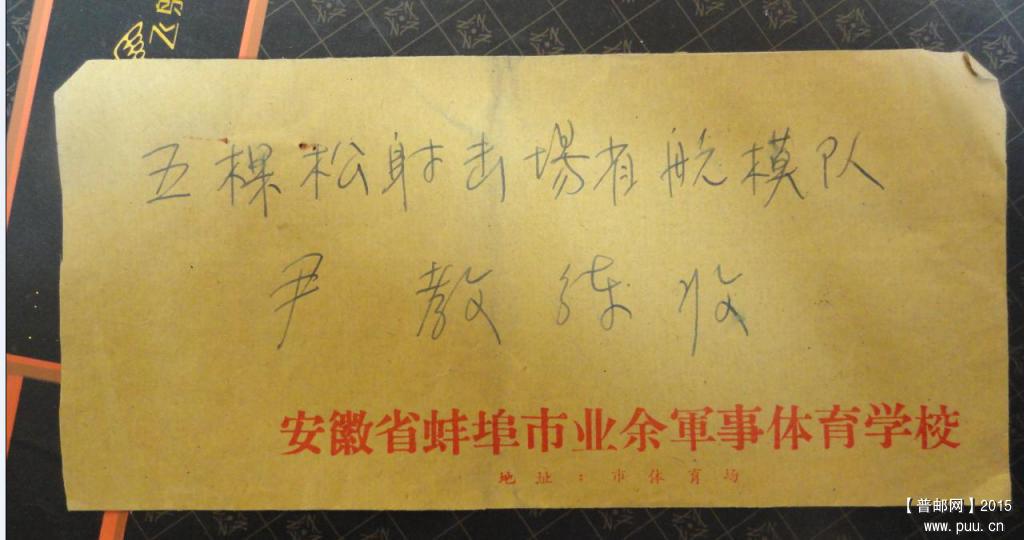 五棵松射击場省航模队
尹教练收
安徽省蚌埠市业余軍事体育学校
地址：市体育场
【普邮网】2015
www.puu.cn